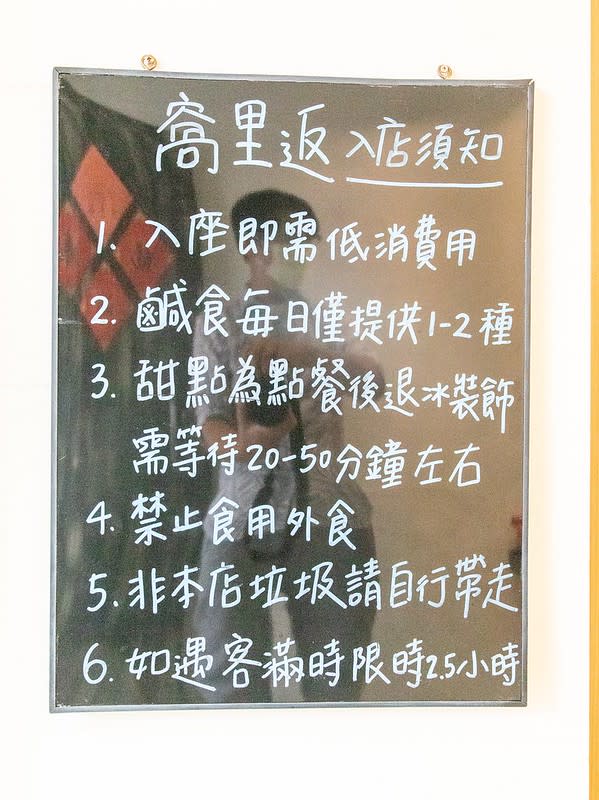 窩里返 入店須知
1. 入座即需低消費用
2. 鹹食每日僅提供1-2種
3. 甜點為點餐後退冰裝飾
需等待20-50分鐘左右
4. 禁止食用外食
5. 非本店垃圾請自行帶走
6. 如遇客滿時限時2.5小時